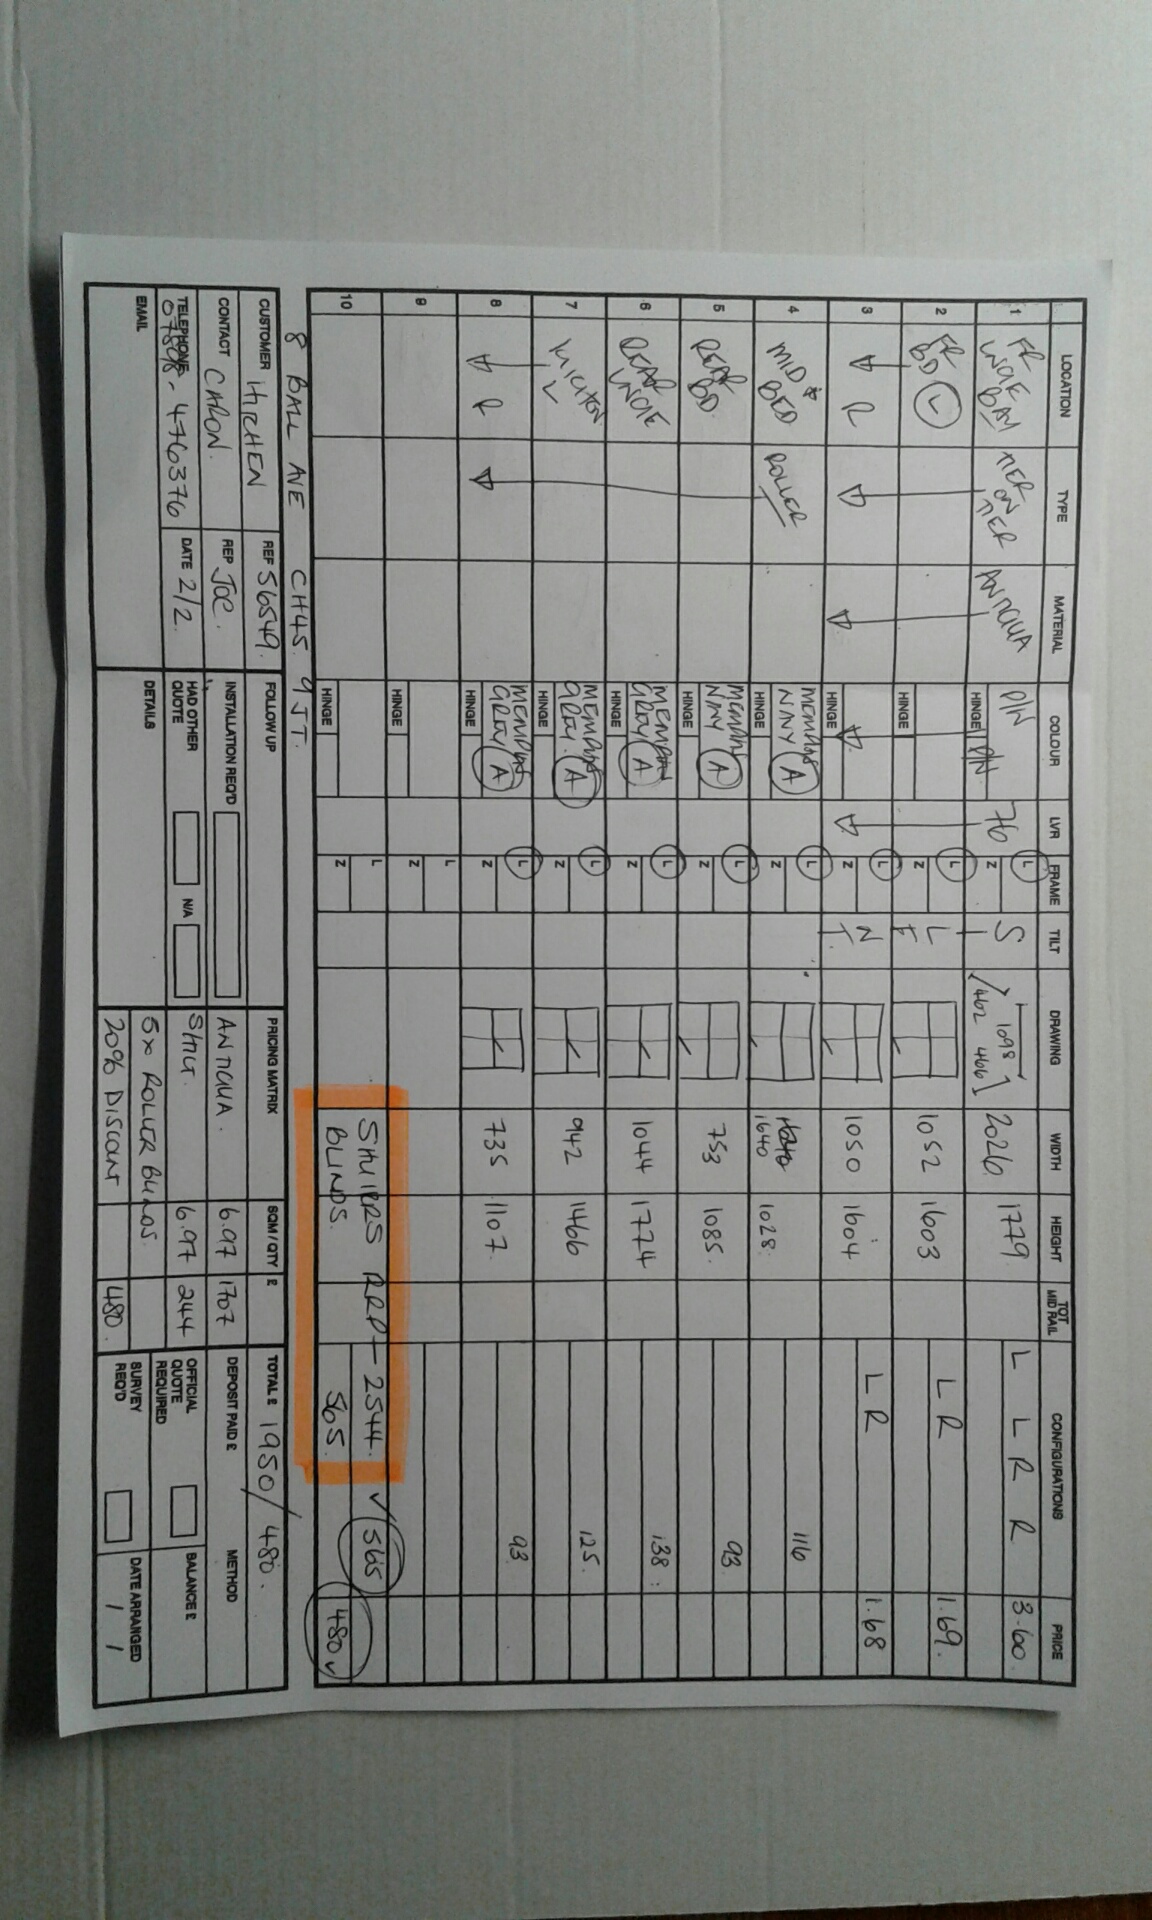 LOCATION TYPE MATERIAL COLOUR LVR FRAME TILT DRAWING WIDTH HEIGHT TOT MID RAIL CONFIGURATIONS PRICE
1 FR TIER ON TIER ANTIGUA P/W 76 L S 1098 2026 1779 L L R R 3.60
BAY HINGE P/W Z 462 466
2 FR BD L L L 1052 1603 L R 1.69
HINGE Z
3 R L N 1050 1604 L R 1.68
HINGE Z T
4 MID BED ROLLER NAVY A L 1640 1028 116
HINGE Z
5 REAR BD. NAVY A L 753 1085 93
HINGE Z
6 REAR GREY A L 1044 1774 138
HINGE Z
7 KITCHEN L GREY A L 942 1466 125
HINGE Z
8 R GREY A L 735 1107 93
HINGE Z
9 L
HINGE Z
10 L RRP - 2544. ✓ 565
HINGE Z BLINDS. 565. 480 ✓
8 BALL AVE CH45. 9JT.
CUSTOMER HITCHEN REF 56549. FOLLOW UP PRICING MATRIX SQM / QTY £ TOTAL £ 1950/480.
CONTACT CARON. REP JOE. INSTALLATION REQ'D ANTIGUA. 6.97 1707 DEPOSIT PAID £ METHOD
TELEPHONE 476376 DATE 2/2. HAD OTHER QUOTE N/A 6.97 244 OFFICIAL QUOTE REQUIRED BALANCE £
EMAIL DETAILS 5x ROLLER BLINDS. SURVEY REQ'D DATE ARRANGED / /
20% DISCOUNT 480.